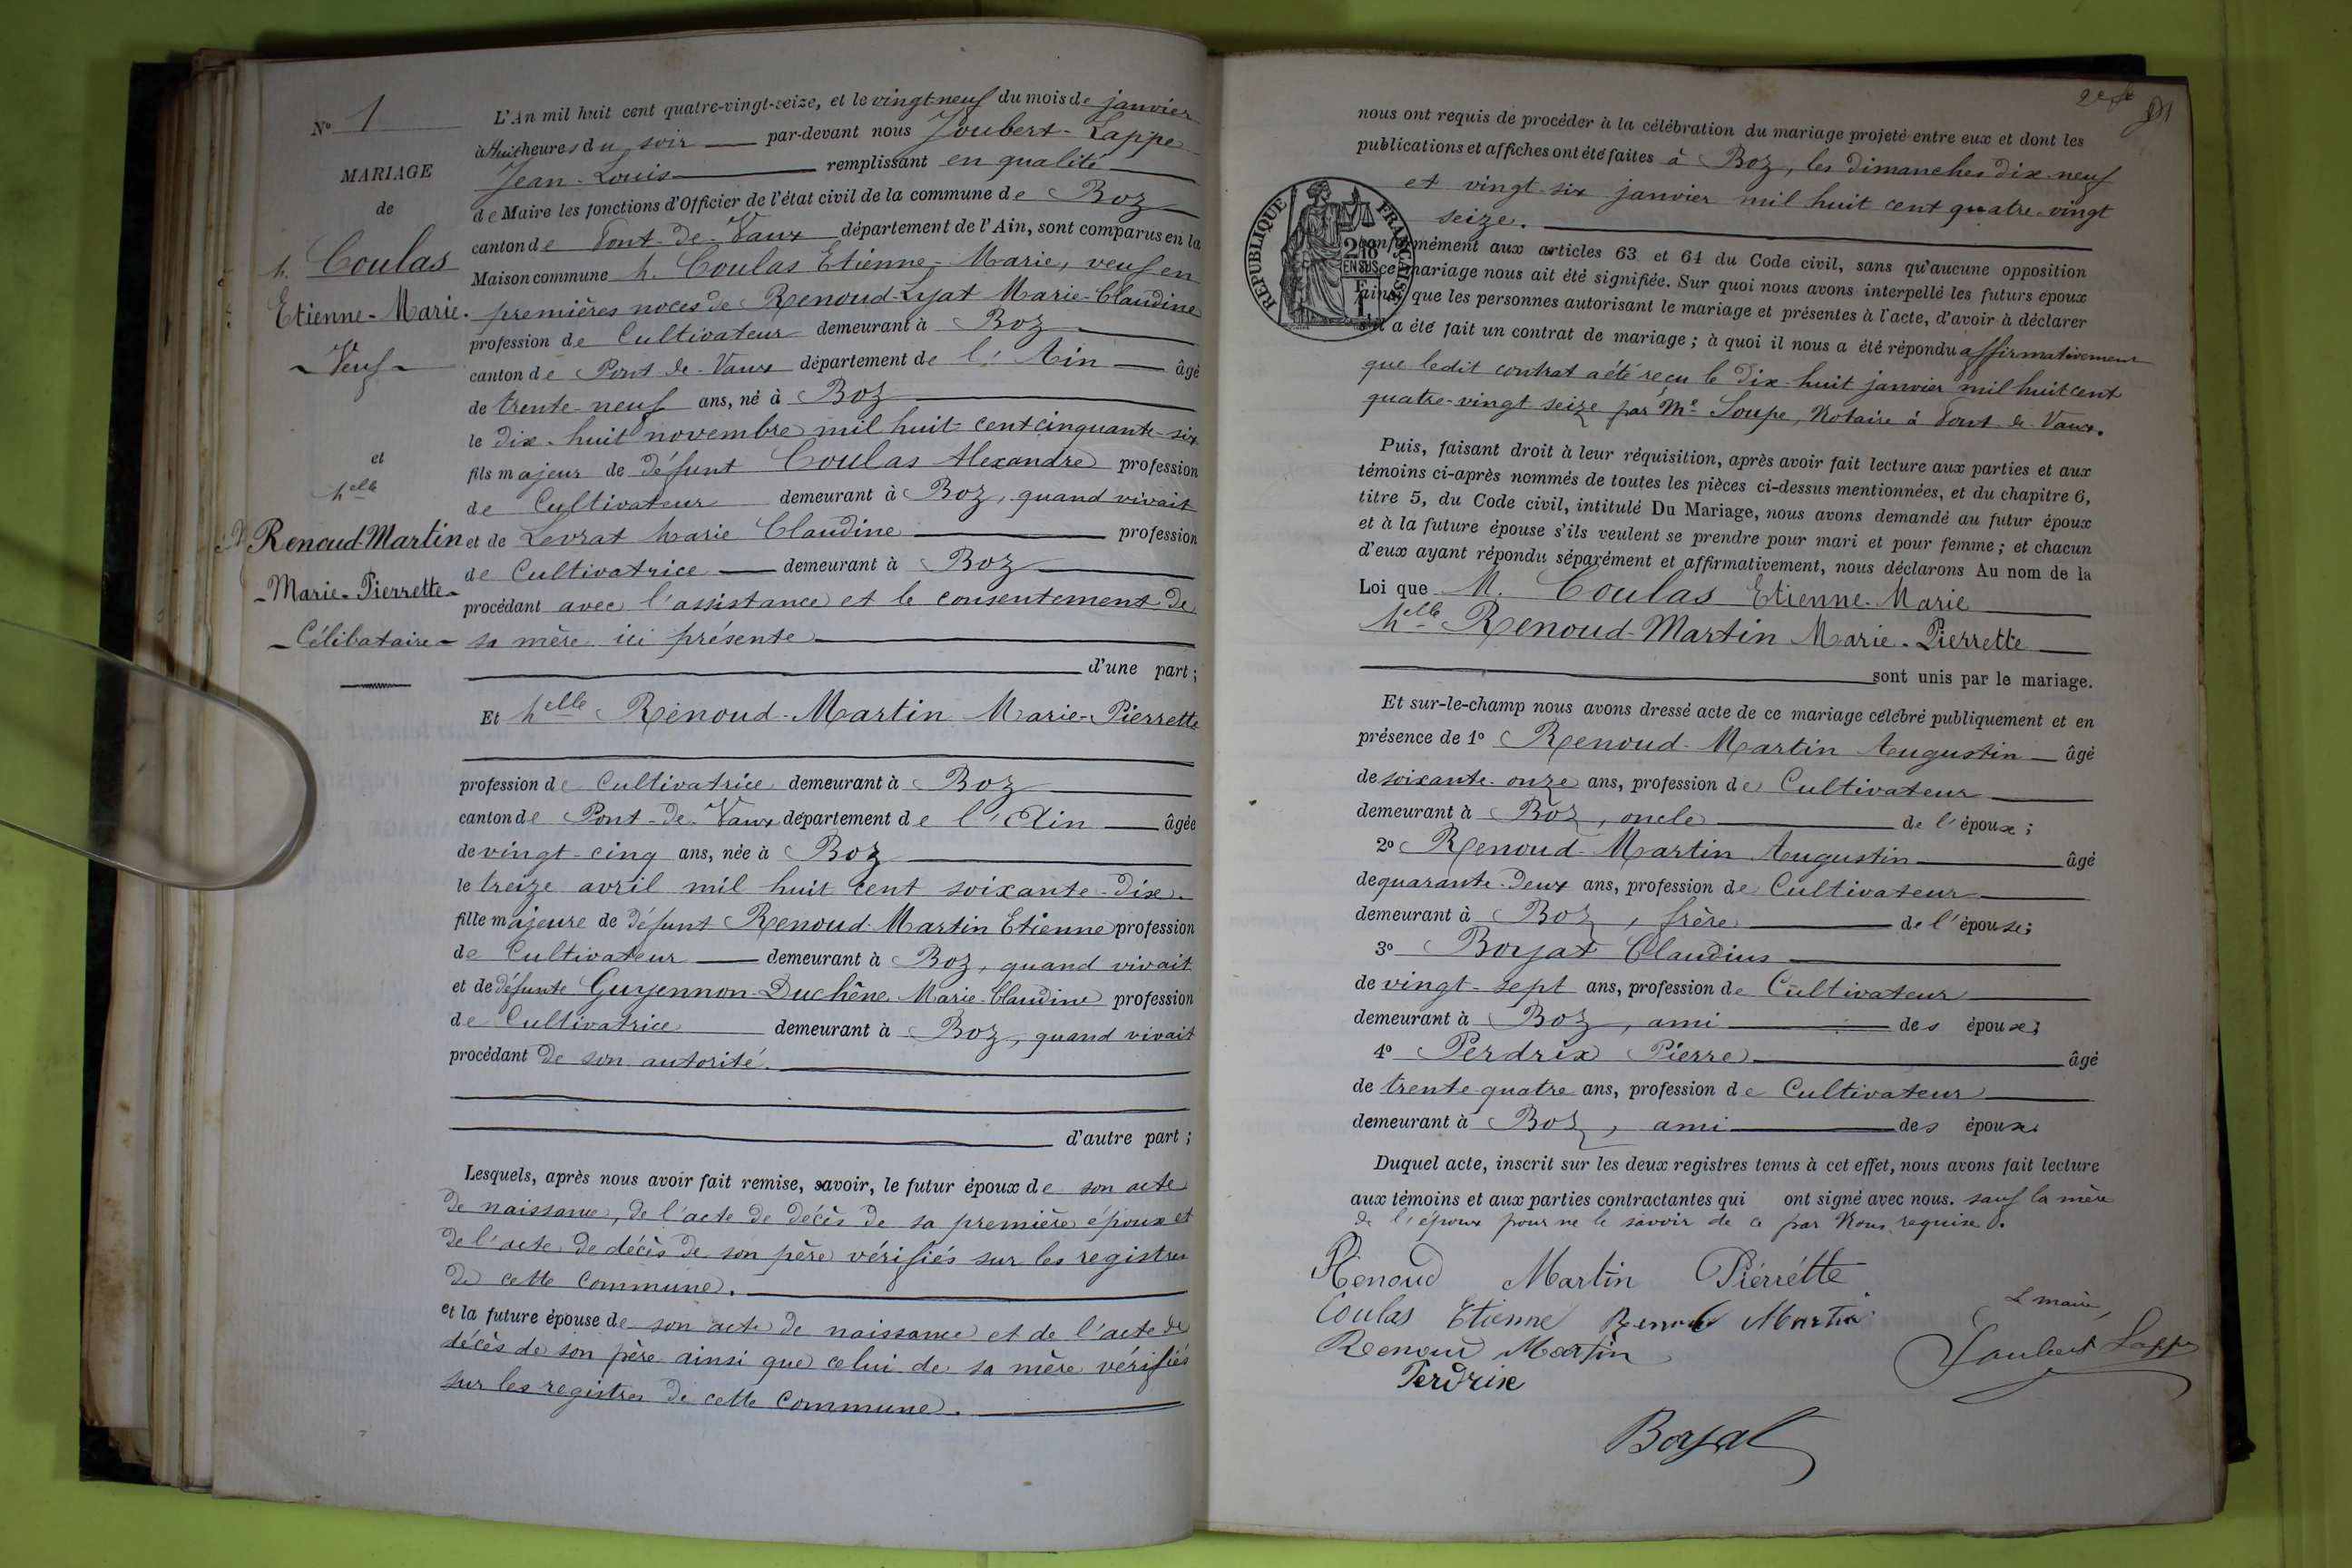 N° 1
MARIAGE
de
h. Coulas
Etienne-Marie.
Veuf
et
helle
Renoud-Martin
Marie-Pierrette
Célibataire
L'An mil huit cent quatre-vingt-seize, et le vingt-neuf du mois de janvier
à huit heures du soir par-devant nous Joubert-Lappe
Jean-Louis remplissant en qualité
de Maire les fonctions d'Officier de l'état civil de la commune de Boz
canton de Pont-de-Vaux département de l'Ain, sont comparus en la
Maison commune h. Coulas Etienne-Marie, veuf en
premières noces de Renoud-Lyat Marie-Claudine
profession de Cultivateur demeurant à Boz
canton de Pont de Vaux département de l'Ain âgé
de trente-neuf ans, né à Boz
le dix-huit novembre mil huit-cent cinquante-six
fils majeur de défunt Coulas Alexandre profession
de Cultivateur demeurant à Boz, quand vivait
et de Levrat Marie Claudine profession
de Cultivatrice demeurant à Boz
procédant avec l'assistance et le consentement de
sa mère ici présente
d'une part;
Et helle Renoud-Martin Marie-Pierrette
profession de Cultivatrice demeurant à Boz
canton de Pont-de-Vaux département de l'Ain âgée
de vingt-cinq ans, née à Boz
le treize avril mil huit cent soixante-dix.
fille majeure de défunt Renoud-Martin Etienne profession
de Cultivateur demeurant à Boz, quand vivait
et de défunte Guyennon-Duchêne Marie-Claudine profession
de Cultivatrice demeurant à Boz, quand vivait
procédant de son autorité.
d'autre part;
Lesquels, après nous avoir fait remise, savoir, le futur époux de son acte
de naissance, de l'acte de décès de sa première époux et
de l'acte de décès de son père vérifiés sur les registres
de cette commune.
et la future épouse de son acte de naissance et de l'acte de
décès de son père ainsi que celui de sa mère vérifiés
sur les registres de cette commune.
nous ont requis de procéder à la célébration du mariage projeté entre eux et dont les
publications et affiches ont été faites à Boz, les dimanches dix-neuf
et vingt-six janvier mil huit cent quatre-vingt
seize.
RÉPUBLIQUE FRANÇAISE
EN SUS
conformément aux articles 63 et 64 du Code civil, sans qu'aucune opposition
ce mariage nous ait été signifiée. Sur quoi nous avons interpellé les futurs époux
ainsi que les personnes autorisant le mariage et présentes à l'acte, d'avoir à déclarer
s'il a été fait un contrat de mariage; à quoi il nous a été répondu affirmativement
que ledit contrat a été reçu le dix-huit janvier mil huit cent
quatre-vingt seize par Me Soupe, Notaire à Pont de Vaux.
Puis, faisant droit à leur réquisition, après avoir fait lecture aux parties et aux
témoins ci-après nommés de toutes les pièces ci-dessus mentionnées, et du chapitre 6,
titre 5, du Code civil, intitulé Du Mariage, nous avons demandé au futur époux
et à la future épouse s'ils veulent se prendre pour mari et pour femme; et chacun
d'eux ayant répondu séparément et affirmativement, nous déclarons Au nom de la
Loi que M. Coulas Etienne-Marie
helle Renoud-Martin Marie-Pierrette
sont unis par le mariage.
Et sur-le-champ nous avons dressé acte de ce mariage célébré publiquement et en
présence de 1° Renoud-Martin Augustin âgé
de soixante-onze ans, profession de Cultivateur
demeurant à Boz, oncle de l'époux;
2° Renoud-Martin Augustin âgé
de quarante-deux ans, profession de Cultivateur
demeurant à Boz, frère de l'épouse;
3° Boyat Claudius
de vingt-sept ans, profession de Cultivateur
demeurant à Boz, ami des époux;
4° Perdrix Pierre âgé
de trente-quatre ans, profession de Cultivateur
demeurant à Boz, ami des époux.
Duquel acte, inscrit sur les deux registres tenus à cet effet, nous avons fait lecture
aux témoins et aux parties contractantes qui ont signé avec nous. sauf la mère
de l'époux pour ne le savoir de ce par Nous requise.
Renoud Martin Piérrétte
Coulas Etienne Renoud Martin
Le maire,
Renoud Martin
Joubert Lappe
Perdrix
Boyat